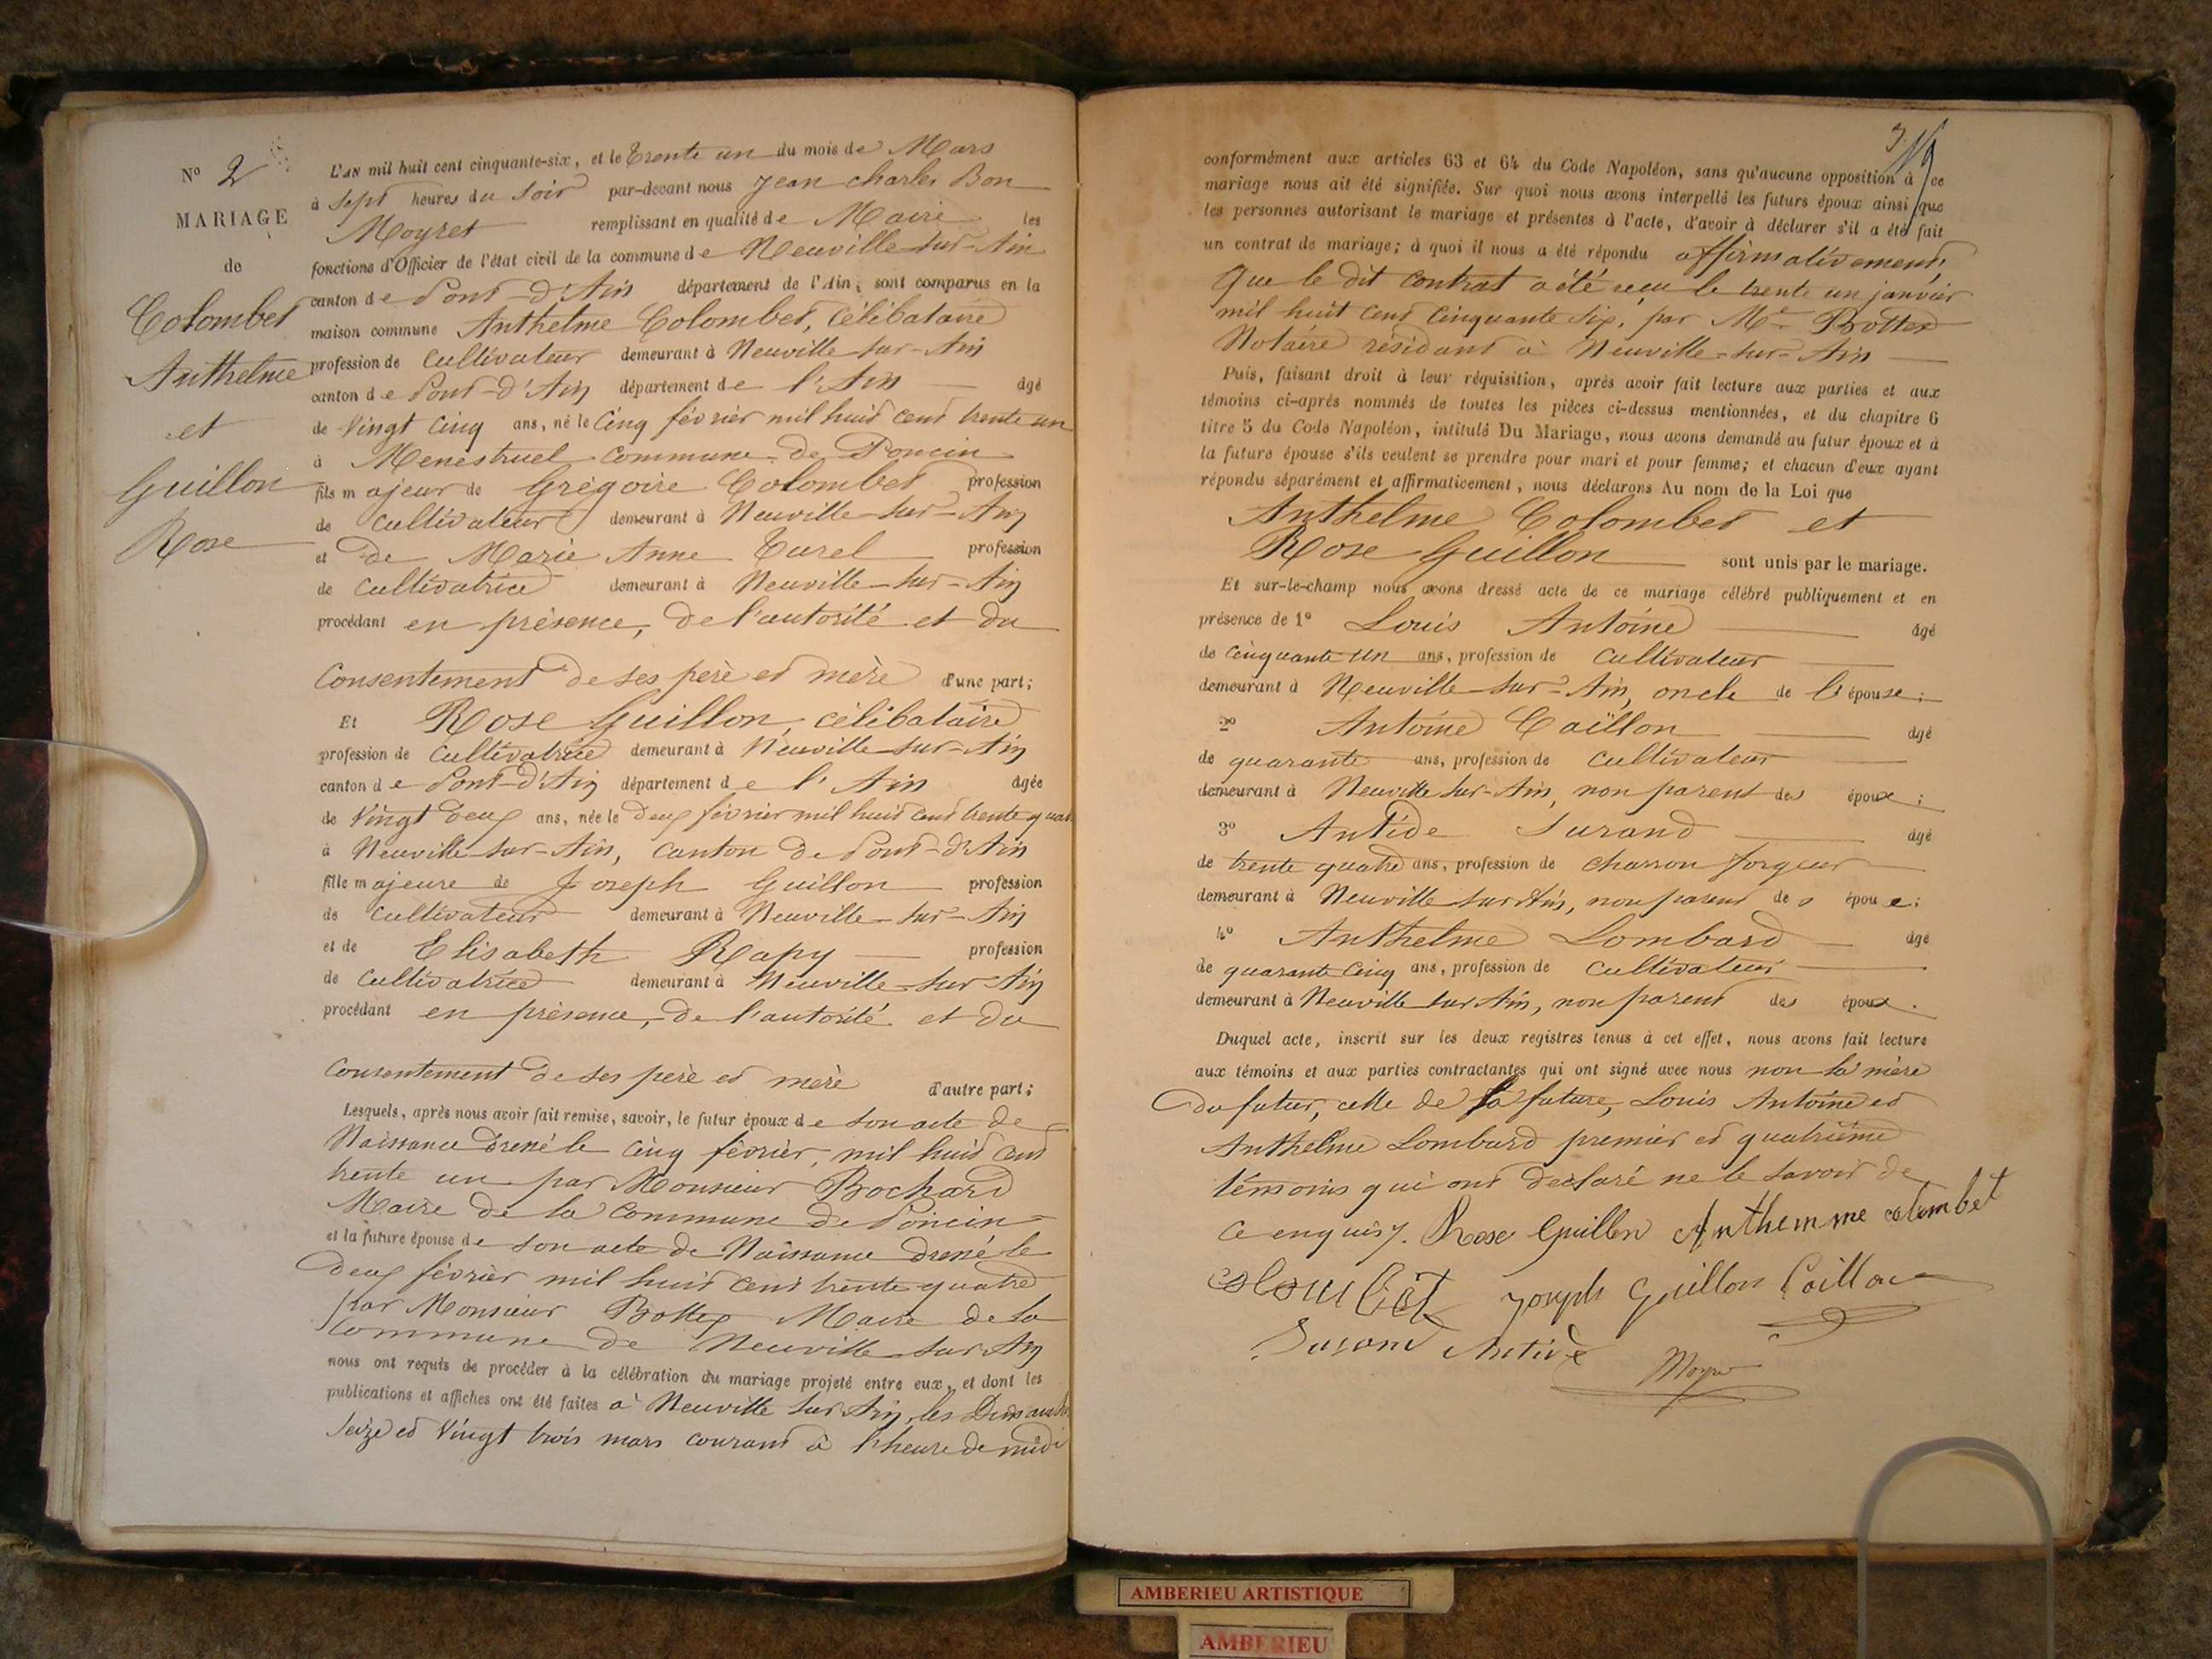 N° 2
MARIAGE
de
Colombet
Anthelme
et
Guillon
Rose
L'AN mil huit cent cinquante-six, et le trente un du mois de Mars
à sept heures du soir par-devant nous Jean Charles Bon
Moyret remplissant en qualité de Maire les
fonctions d'Officier de l'état civil de la commune de Neuville-sur-Ain
canton de Pont-d'Ain département de l'Ain; sont comparus en la
maison commune Anthelme Colombet, célibataire
profession de cultivateur demeurant à Neuville-sur-Ain
canton de Pont-d'Ain département de l'Ain âgé
de vingt cinq ans, né le cinq février mil huit cent trente un
à Menestruel commune de Poncin
fils majeur de Grégoire Colombet profession
de cultivateur demeurant à Neuville-sur-Ain
et de Marie Anne Turel profession
de cultivatrice demeurant à Neuville-sur-Ain
procédant en présence, de l'autorité et du
consentement de ses père et mère d'une part;
Et Rose Guillon, célibataire
profession de cultivatrice demeurant à Neuville-sur-Ain
canton de Pont-d'Ain département de l'Ain âgée
de vingt deux ans, née le deux février mil huit cent trente quat
à Neuville-sur-Ain, canton de Pont-d'Ain
fille majeure de Joseph Guillon profession
de cultivateur demeurant à Neuville-sur-Ain
et de Elisabeth Rapy profession
de cultivatrice demeurant à Neuville-sur-Ain
procédant en présence, de l'autorité et du
consentement de ses père et mère d'autre part;
Lesquels, après nous avoir fait remise, savoir, le futur époux de son acte de
Naissance dressé le cinq février, mil huit cent
trente un par Monsieur Bochard
Maire de la commune de Poncin
et la future épouse de son acte de Naissance dressé le
deux février mil huit cent trente quatre
par Monsieur Bottex Maire de la
Commune de Neuville-sur-Ain
nous ont requis de procéder à la célébration du mariage projeté entre eux, et dont les
publications et affiches ont été faites à Neuville sur Ain, les Dimanches
seize et vingt trois mars courant à l'heure de midi
conformément aux articles 63 et 64 du Code Napoléon, sans qu'aucune opposition à ce
mariage nous ait été signifiée. Sur quoi nous avons interpellé les futurs époux ainsi que
les personnes autorisant le mariage et présentes à l'acte, d'avoir à déclarer s'il a été fait
un contrat de mariage; à quoi il nous a été répondu affirmativement,
que le dit contrat a été reçu le trente un janvier
mil huit cent cinquante six, par Me Bottex
Notaire résidant à Neuville-sur-Ain
Puis, faisant droit à leur réquisition, après avoir fait lecture aux parties et aux
témoins ci-après nommés de toutes les pièces ci-dessus mentionnées, et du chapitre 6
titre 5 du Code Napoléon, intitulé Du Mariage, nous avons demandé au futur époux et à
la future épouse s'ils veulent se prendre pour mari et pour femme; et chacun d'eux ayant
répondu séparément et affirmativement, nous déclarons Au nom de la Loi que
Anthelme Colombet et
Rose Guillon sont unis par le mariage.
Et sur-le-champ nous avons dressé acte de ce mariage célébré publiquement et en
présence de 1° Louis Antoine âgé
de cinquante un ans, profession de cultivateur
demeurant à Neuville-sur-Ain, oncle de l'épouse;
2° Antoine Caillon âgé
de quarante ans, profession de cultivateur
demeurant à Neuville sur-Ain, non parent des époux;
3° Antide Surand âgé
de trente quatre ans, profession de charron forgeur
demeurant à Neuville sur Ain, non parent des époux;
4° Anthelme Lombard âgé
de quarante cinq ans, profession de cultivateur
demeurant à Neuville sur Ain, non parent des époux.
Duquel acte, inscrit sur les deux registres tenus à cet effet, nous avons fait lecture
aux témoins et aux parties contractantes qui ont signé avec nous non la mère
du futur, celle de la future, Louis Antoine et
Anthelme Lombard premier et quatrième
témoins qui ont déclaré ne le savoir de
ce enquis. Rose Guillon Anthemme colombet
Colombet Joseph Guillon Caillon
Surand Antide Moyret
AMBERIEU ARTISTIQUE
AMBERIEU